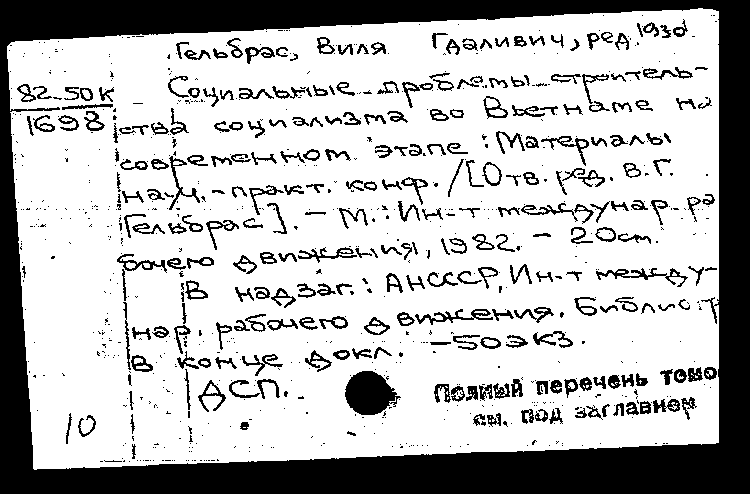 Гельбрас, Виля Гдаливич, ред. 1930
82-50К
1698
Социальные проблемы строитель-
ства социализма во Вьетнаме на
современном этапе: Материалы
науч.-практ. конф. / [Отв. ред. В.Г.
Гельбрас]. - М.: Ин-т междунар. ра
бочего движения, 1982. - 20см.
В надзаг.: АНСССР, Ин-т между-
нар. рабочего движения. Библиогр
в конце докл. - 50экз.
ДСП.
Полный перечень томо
см. под заглавием
10